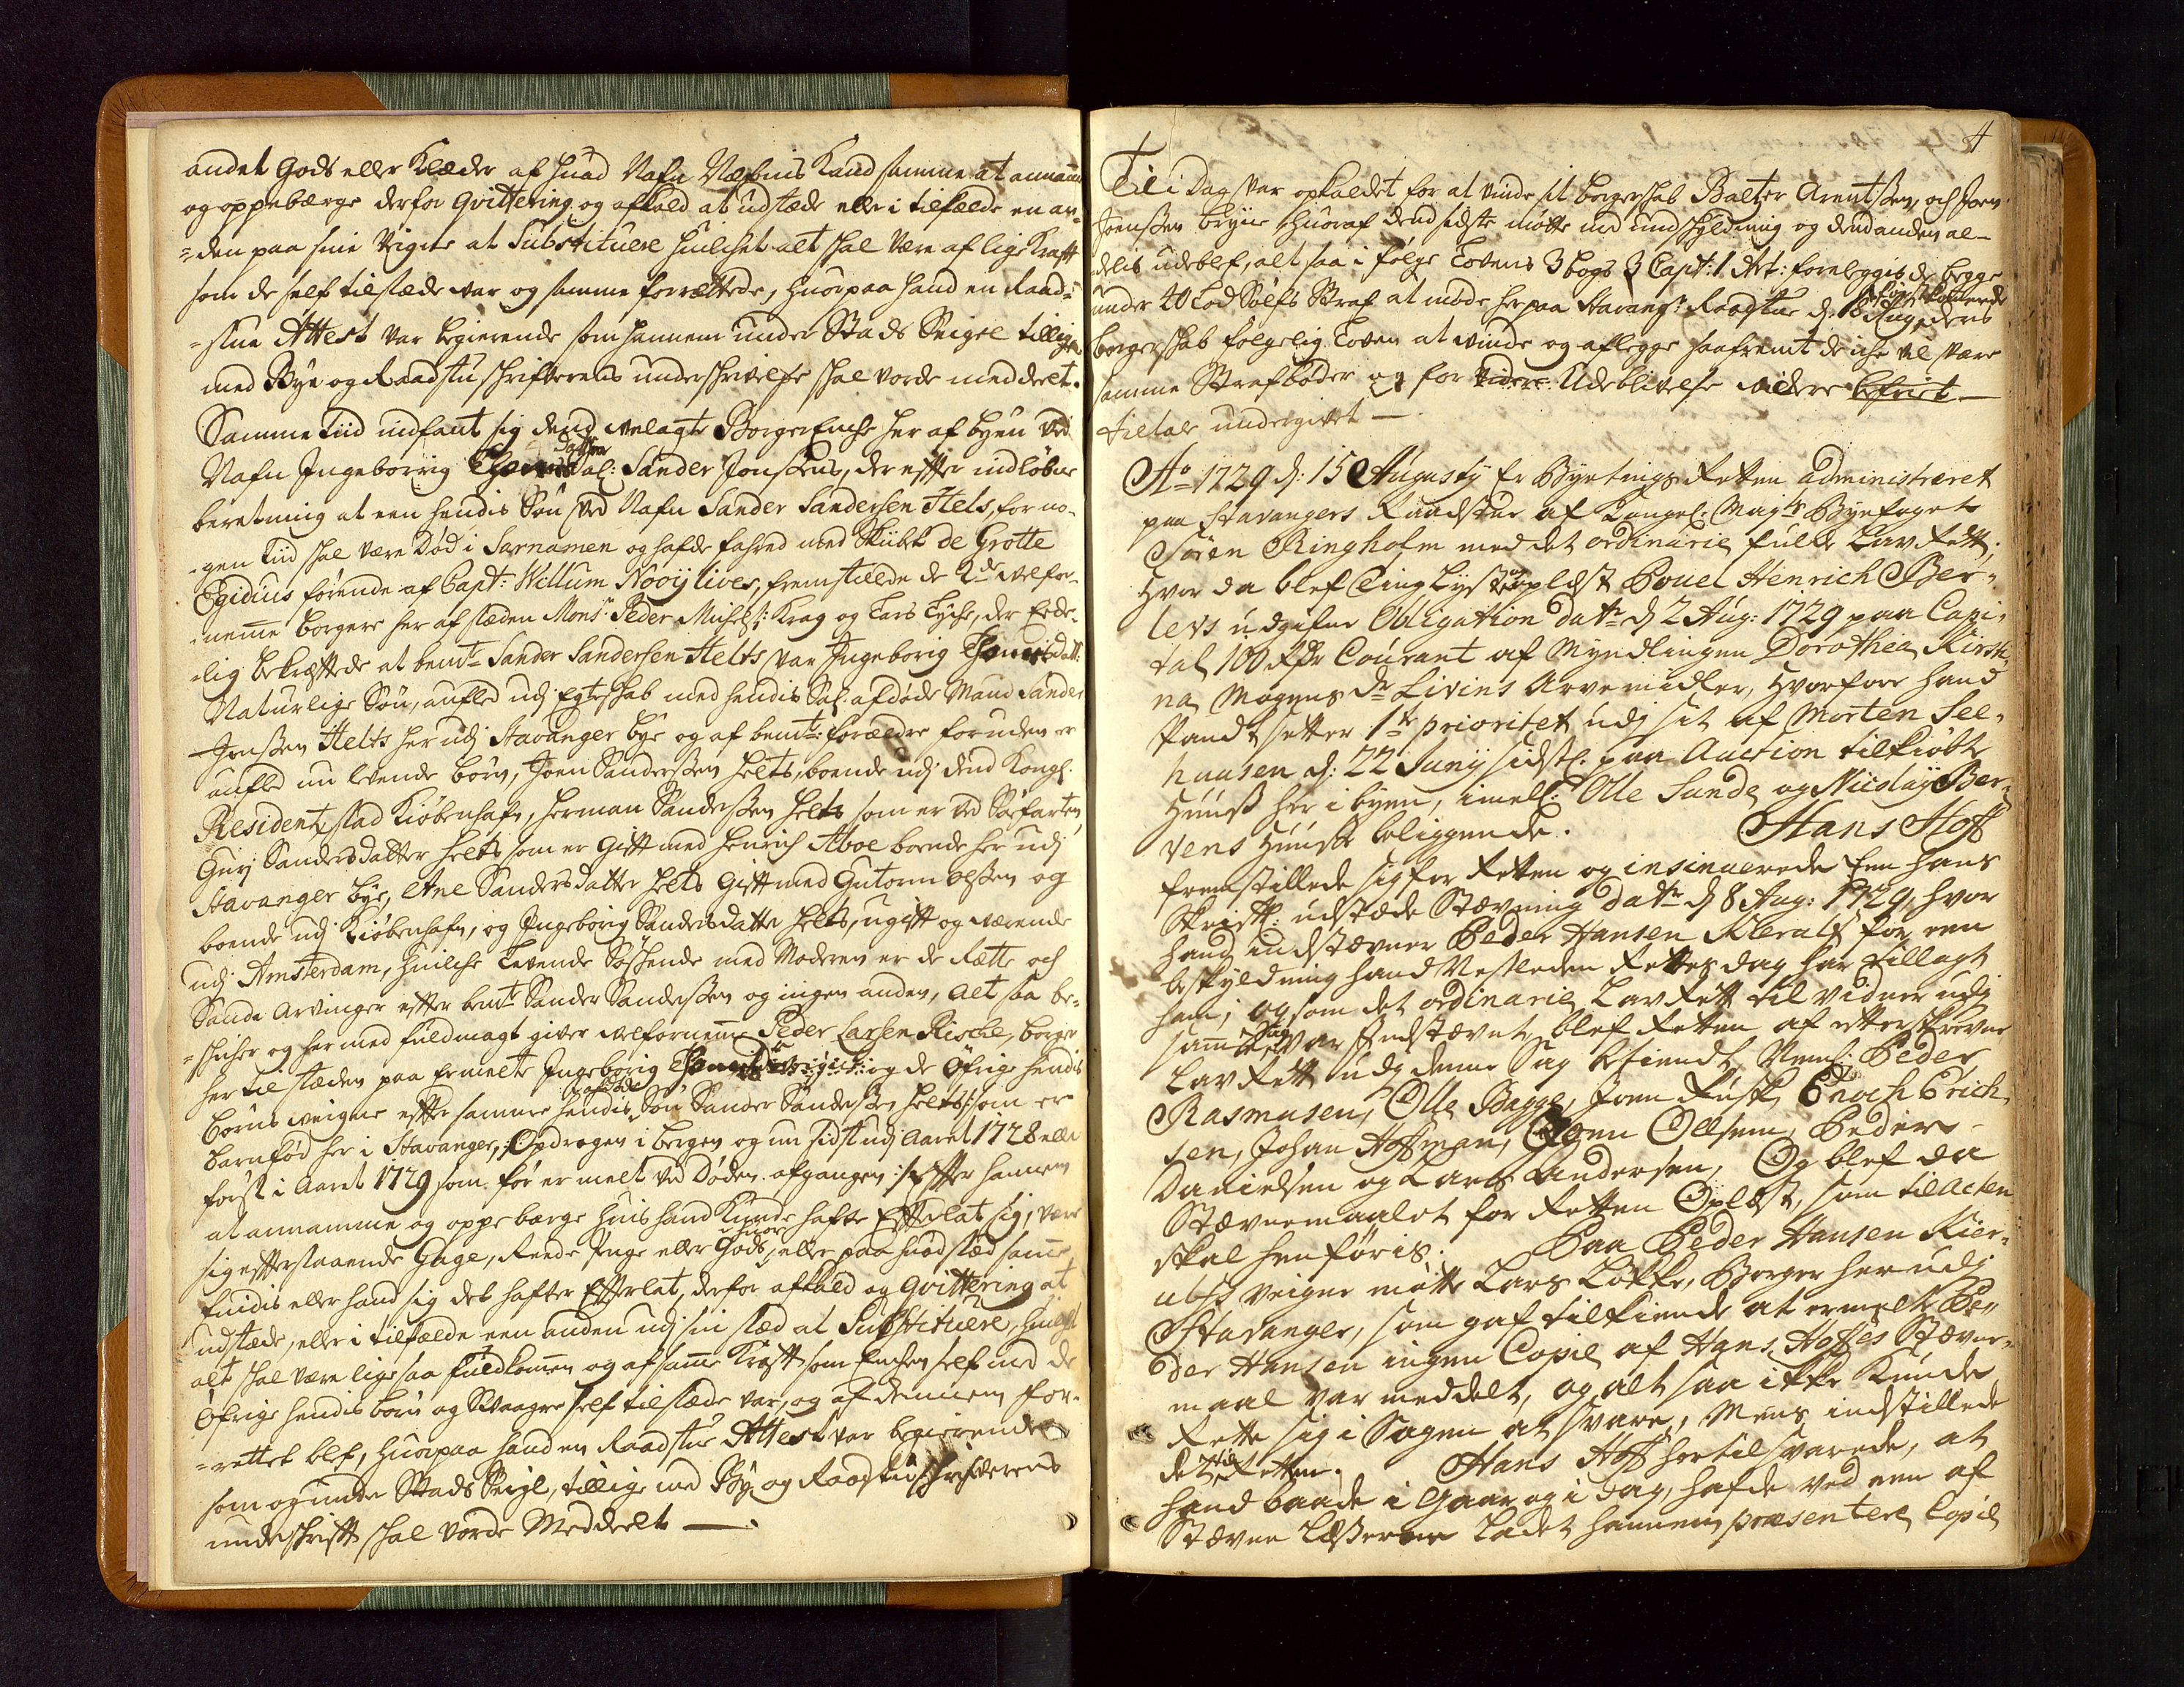 andet Gods eller Klæder af huad Nafn Næfnis Kand samme at annamme
og oppebærge derfor Qvittering og afkald at udstæde eller i tilfælde en an-
=den paa sine Veigne at Substituere huilchet alt skal være af lige Krafft
som de self tilstæde var og samme forrættede, huorpaa hand en Raad=
=stue Attest var begierende som hannem under Stads Seigel tillige
med Bye og Raadstuschrifverens underschrivelse skal vorde meddeelt.
Samme tiid indfant sig dend velagte Borger Enche her af byen ved
Nafn Ingeborrig Datter Sal: Sander Jonssens, der effter indløbne
beretning at een hendis Søn ved Nafn Sander Sandersen Helts, for no-
-gen tiid skal være død i Sarnamen og hafde fahred med Skibet de Grotte
Egidius førende af Capt: Willum Nooÿtives, fremstillede de 2de velfor-
-nemme borgere her af stæden Monsr Peder Michels: Krag og Lars Tyche, der Eede-
-lig bekræfftede at bemte Sander Sandersen Helts var Ingeborig datt:
Naturlige Søn, aufled udj Egteschab med hendis Sal. afdøde Mand Sander
Jonssen Helts her udj Stavanger bye og af bemte forældre foruden er
aufled nu levende børn, Joen Sanderssen Helts, boende udj dend Kongl.
Residentz stad Kiøbenhafn, Herman Sanderssen Helts som er ved Søefarten,
Gurj Sandersdatter Helts som er Gifft med Henrich Aboe boende her udj
Stavanger bye, Ane Sandersdatter Helts Gifft med Gutorm olssen og
boende udj Kiøbenhafn, og Ingeborig Sandersdatter Helts, ugifft og værende
udj Amsterdam, huilche Levende Søschende med Moderen er de Rætte och
Sande Arvinger effter bemte Sander Sanderssen og ingen anden, alt saa be-
=schicher og her med fuldmagt giver velfornemme Peder Larsen Rische, borger
her til stæden paa Ermelte Ingeborig og de Øfrige hendis
børns veigne effter samme hendis afdøde Søn Sander Sanderssen Helts som er
barnfød her i Stavanger, Opdragen i bergen og nu sidst udj Aaret 1728 eller
først i Aaret 1729 som før er melt ved Døden afgangen effter hannem
at annamme og oppebærge huis hand Kunde hafte Effterlat sig, være
sig effterstaaende Gage, Reede Penge eller Gods, eller paa huad stæd samme
findis eller hand sig det hafter Effterlat, derfor afkald og Qvittering at
udstæde, eller i tilfælde een anden udj sin stæd at Substituere, huilchet
alt skal være lige saa fuldkommen og af samme Krafft som Enchen self med de
Øfrige hendis børn og Svaagre self tilstæde var, og af dennem for-
-rettet blef, huorpaa hand en Raadstue Attest var begierende
som og under Stads Seigl, tillige med By og Raadstuschrifverens
underschrifft skal vorde Meddeelt.
4
Til i Dag var opkaldet for at vinde sit borgerschab Balter Arentssen, och Joen
Joenssen Bryne huoraf dend sidste møtte med undschyldning og dend anden al-
-delis udeblef, alt saa i følge Lovens 3 bogs 3 Capt: 1 Art: foreleggis de begge
under 20 Lod Sølfs Straf at møde her paa Stavangr Raadstue d. 18 Aug deris
borgerschab følgelig Loven at vinde og aflegge saafremt de iche vil være
samme Strafbøder og for videre Udeblivelse videre befriet
tiltale undergivet
Ao 1729 d: 15 Augusty Er Byetings Retten administreret
paa Stavangers Raadstue af Kongel: Mayts Byefoget
Søren Ringholm med det ordinarie fulde LavRett;
Hvor da blef Ting Lyst og oplæst Povel Henrich Ber-
levs udgifne Obligation datr d 2 Aug: 1729 paa Capi-
tal 100 Rdr Courant af Myndlingen Dorothea Kirsti-
na Mogens dr Livins Arvemidler, hvorfore hand
Pandtsetter 1te prioritet udj sit af Morten See-
huusen d: 22 Juny sidstl. paa Auction tilkiøbte
Huuss her i byen, imell: Olle Sunde og Nicolay Ber-
vens Huuse beliggende. Hans Hoff
fremstillede sig for Retten og insinuerede Een hans
Skriftl: udstæde Stævning datr d 8 Aug: 1729, hvor
hand indstævner Peder Hansen Kierulf for een
beskyldning hand Nestleden Rettes dag har tillagt
ham, og som det ordinarie LavRett til vidner udj
samme Sag var Indstævnt, blef Retten af etterskrevne
LavRett udj denne Sag betiendt, Neml: Peder
Rasmusen, Olle Bagge, Joen Fusk, Enoch Erich-
sen, Johan Hoffman, Ollsen, Peder
Danielsen og Lars Andersen, Og blef da
Stævnemaalet for Retten Oplæst, som til Acten
skal henføris. Paa Peder Hansen Kier-
ulfs veigne møtte Lars Løkke, Borger her udj
Stavanger, som gaf tilkiende at ermelte Pe-
der Hansen ingen Copie af Hans Hoffes Stævne-
maal var meddelt, og alt saa ikke Kunde
Rette sig i Sagen at svare, Mens indstillede
det til Retten. Hans Hoff hertil svarede, at
hand baade i Gaar og i Dag, hafde ved een af
Stævne Læsserne Ladet hannem præsentere Copie